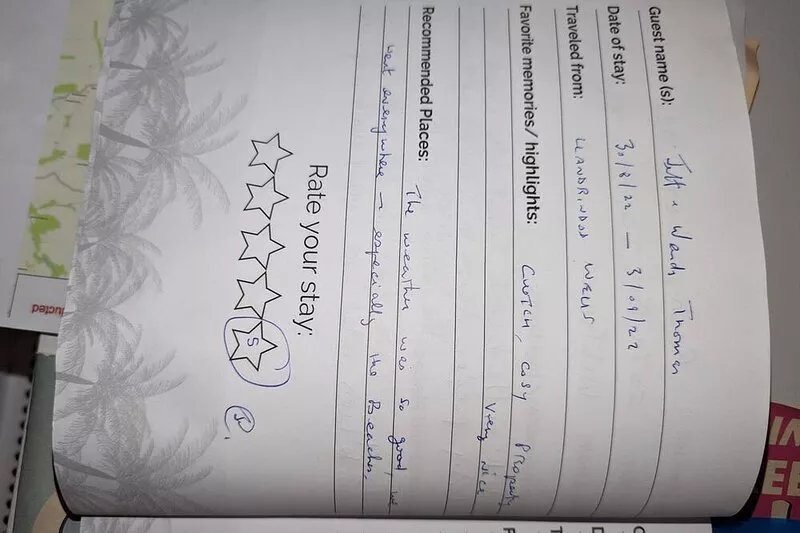 Guest name (s): Jeff & Wendy Thomas
Date of stay: 30/8/22 — 3/09/22
Traveled from: LLANDRINDOD WELLS
Favorite memories/ highlights: CWTCH, COSY PROPERTY
VERY NICE
Recommended Places: The weather was so good, we
went everywhere - especially the Beaches.
Rate your stay:
5
ucted